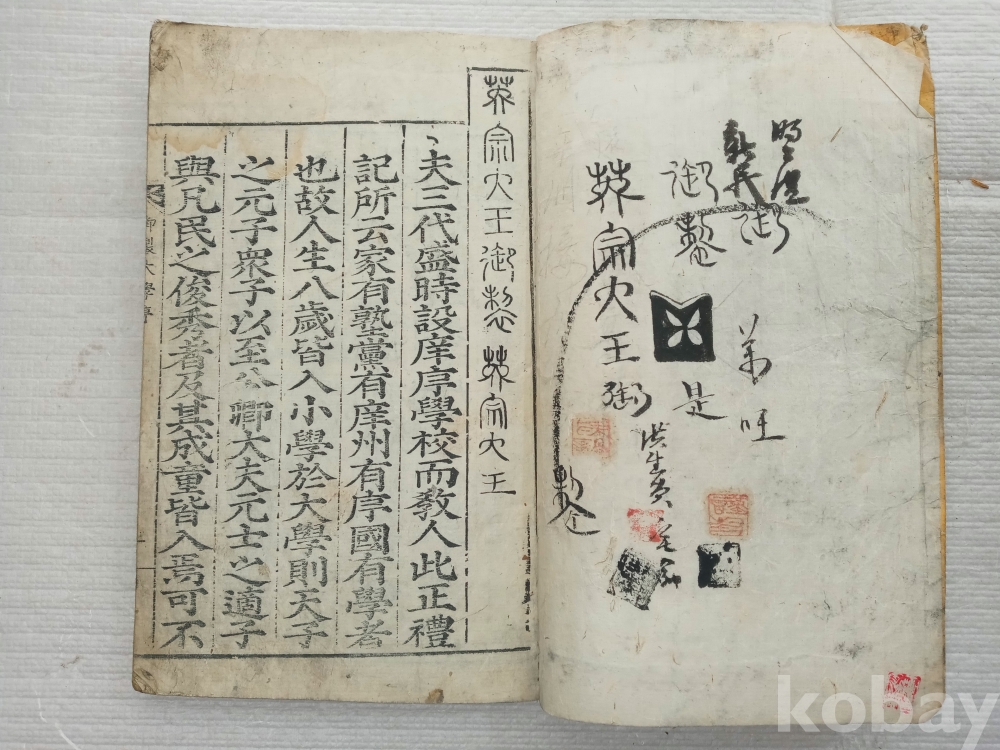 明德
新民
御
御製
英宗大王御
製
是
洪生員宅
英宗大王御製英宗大王
夫三代盛時設庠序學校而敎人此正禮
記所云家有塾黨有庠州有序國有學者
也故人生八歲皆入小學於大學則天子
之元子衆子以至公卿大夫元士之適子
與凡民之俊秀者及其成童皆入焉可不
御製大學序
kobay